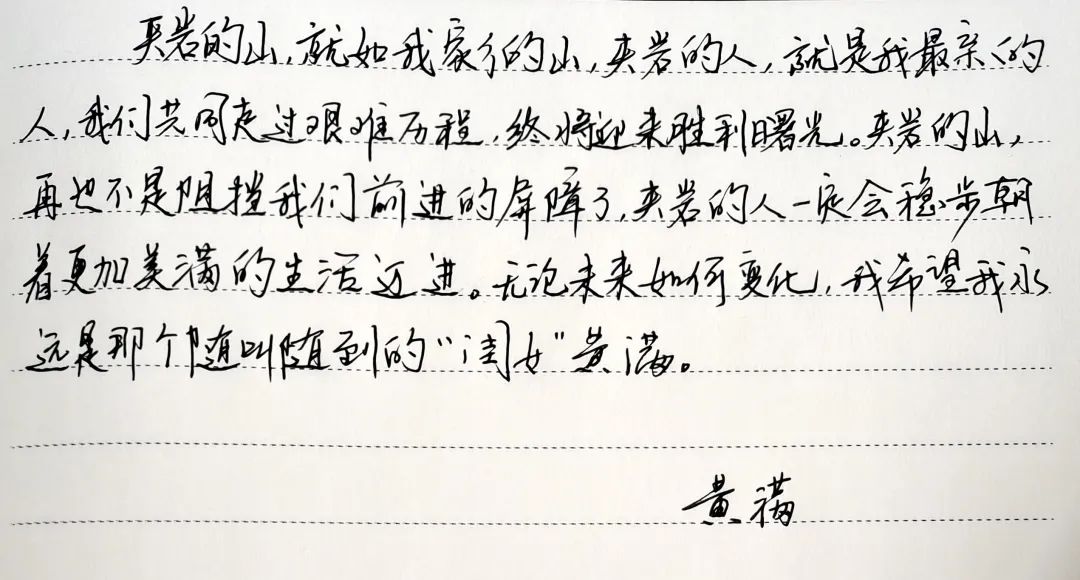 夹岩的山,就如我家乡的山,夹岩的人,就是我最亲的
人,我们共同走过艰难历程,终将迎来胜利曙光。夹岩的山,
再也不是阻挡我们前进的屏障了,夹岩的人一定会稳步朝
着更加美满的生活迈进。无论未来如何变化,我希望我永
远是那个随叫随到的“闺女”黄满。
黄满